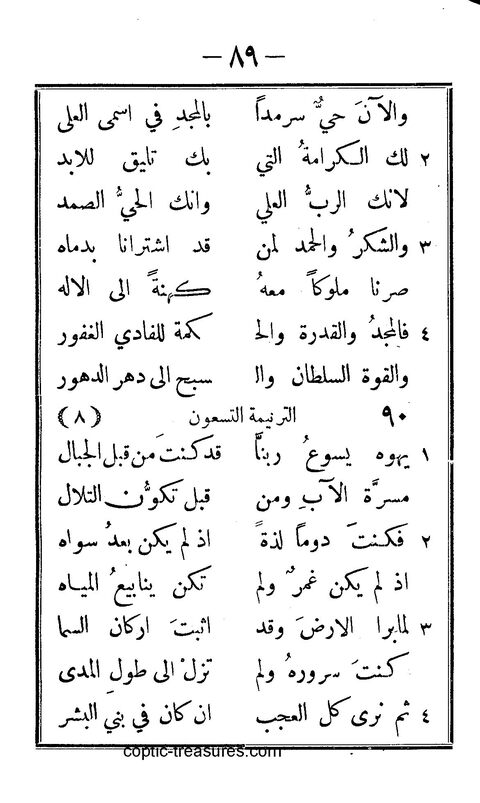 — ٨٩ —
والآنَ حيٌّ سرمداً بالمجدِ في اسمى العلى
٢ لك الـكرامةُ التي بك تليق للابد
لانك الربُّ العلي وانك الحيُّ الصمد
٣ والشكرُ والحمد لمن قد اشترانا بدماه
صرنا ملوكاً معهُ كهنةً الى الاله
٤ فالمجدُ والقدرة والحـ ـكمة للفادي الغفور
والقوة السلطان والـ سبح الى دهر الدهور
٩٠ الترنيمة التسعون (٨)
١ يهوه يسوعُ ربنَّا قدكنتَ من قبل الجبال
مسرَّة الآبِ ومن قبل تكوُّن التلال
٢ فكنتَ دوماً لذةً اذ لم يكن بعدُ سواه
اذ لم يكن غمرٌ ولم تكن ينابيعُ المياه
٣ لمابرا الارضَ وقد اثبتَ اركان السما
كنتَ سرورهُ ولم تزلْ الى طولِ المدى
٤ ثم نرى كل العجب ان كان في بني البشر
coptic-treasures.com